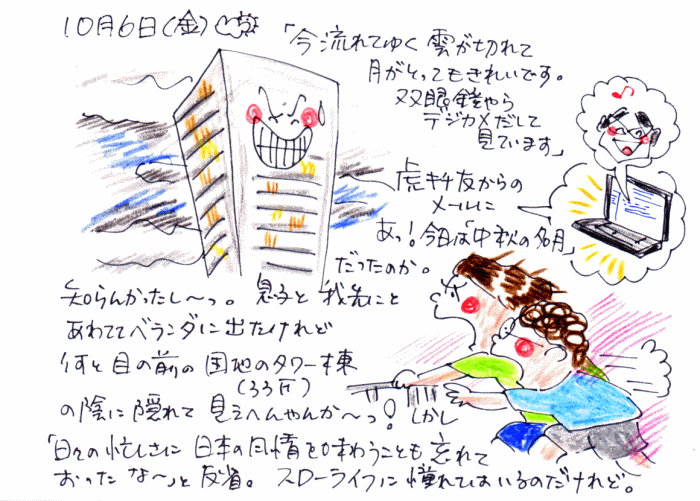 10月6日(金)
「今流れてゆく雲が切れて
月がとってもきれいです。
双眼鏡やら
デジカメだして
見ています」
虎キチ友からの
メールに
あっ!今日は「中秋の名月」
だったのか。
知らんかったし〜っ。息子と我先にと
あわててベランダに出たけれど
何と目の前の団地のタワー棟
(33F)
の陰に隠れて見えへんやんか〜っ!しかし
「日々の忙しさに日本の風情を味わうことも忘れて
おったな〜」と反省。スローライフに憧れてはいるのだけれど。